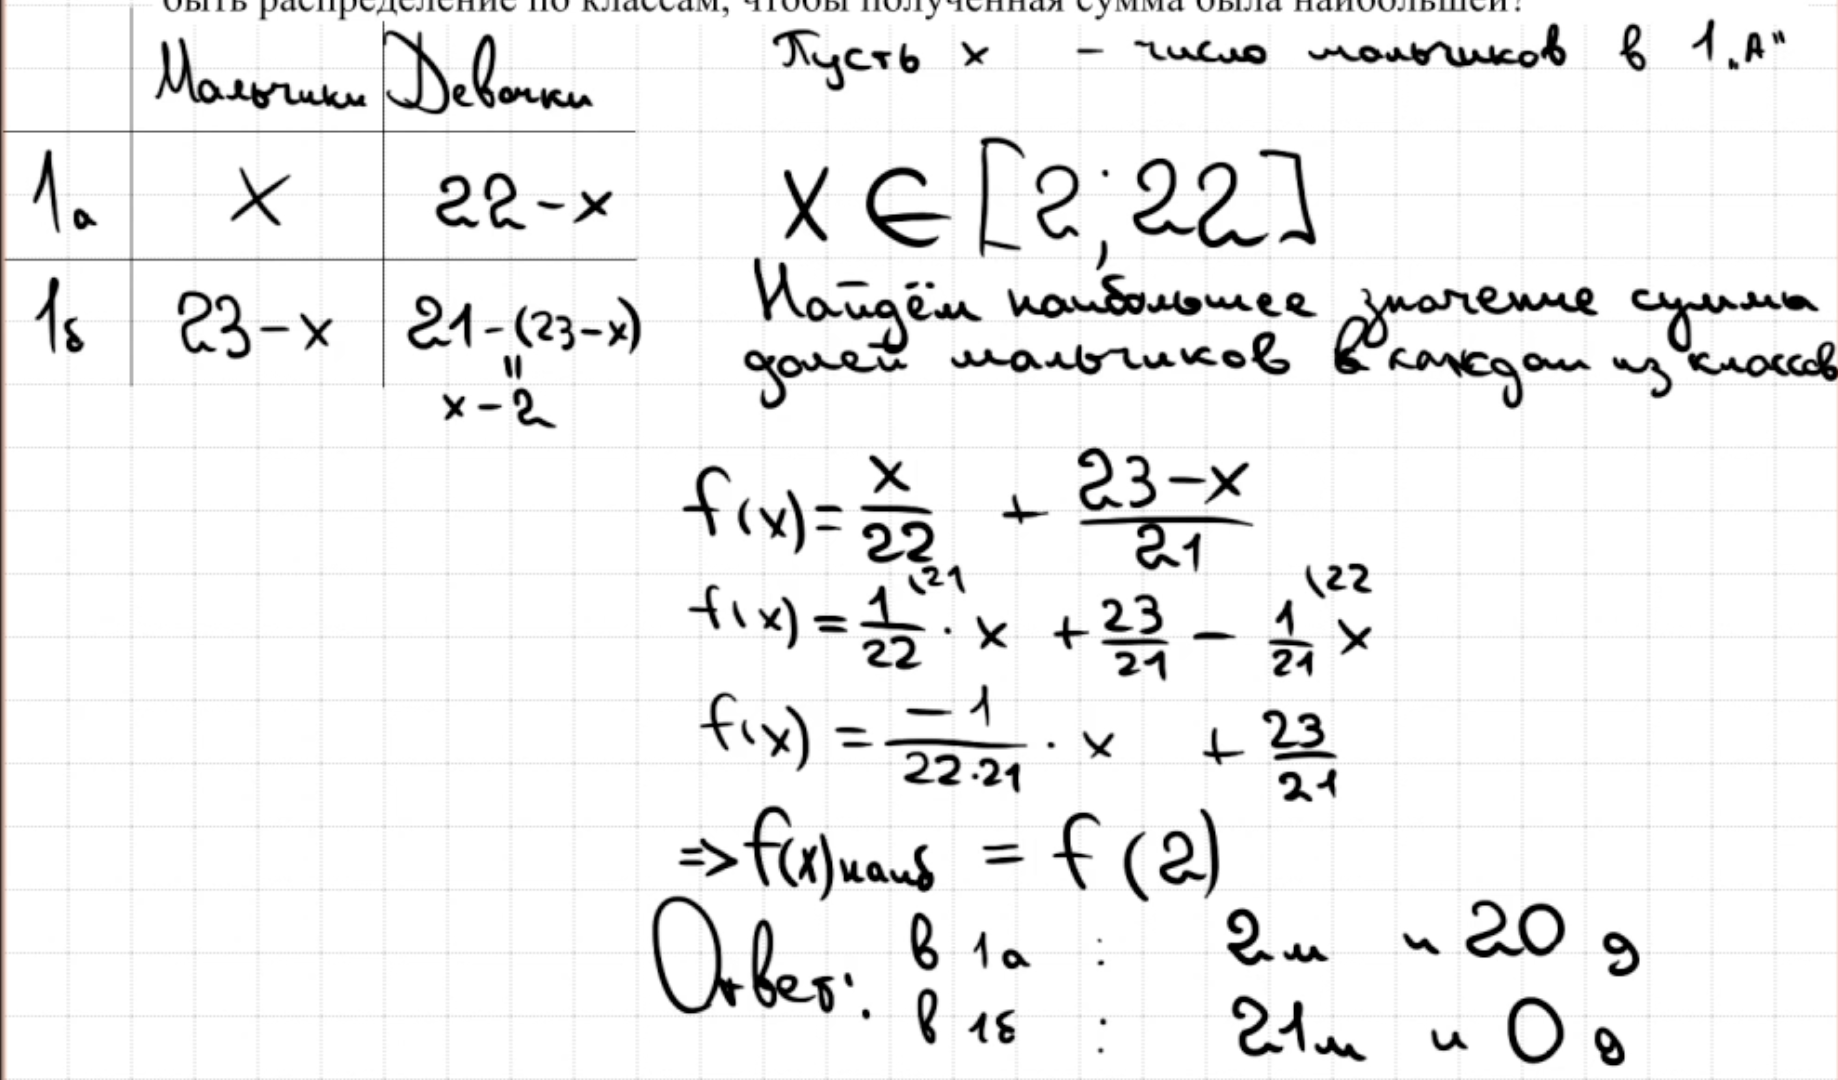 быть распределение по классам, чтобы полученная сумма была наибольшей?
Мальчики Девочки
1а x 22-x
1б 23-x 21-(23-x)
"
x-2
Пусть x - число мальчиков в 1 „А"
X ∈ [2; 22]
Найдём наибольшее значение суммы
долей мальчиков в каждом из классов
f(x) = x/22 + 23-x/21
f(x) = 1/22 (21 · x + 23/21 - 1/21 (22 x
f(x) = -1/22·21 · x + 23/21
=> f(x) наиб = f(2)
Ответ: в 1а : 2м и 20 д
в 1б : 21м и 0 д